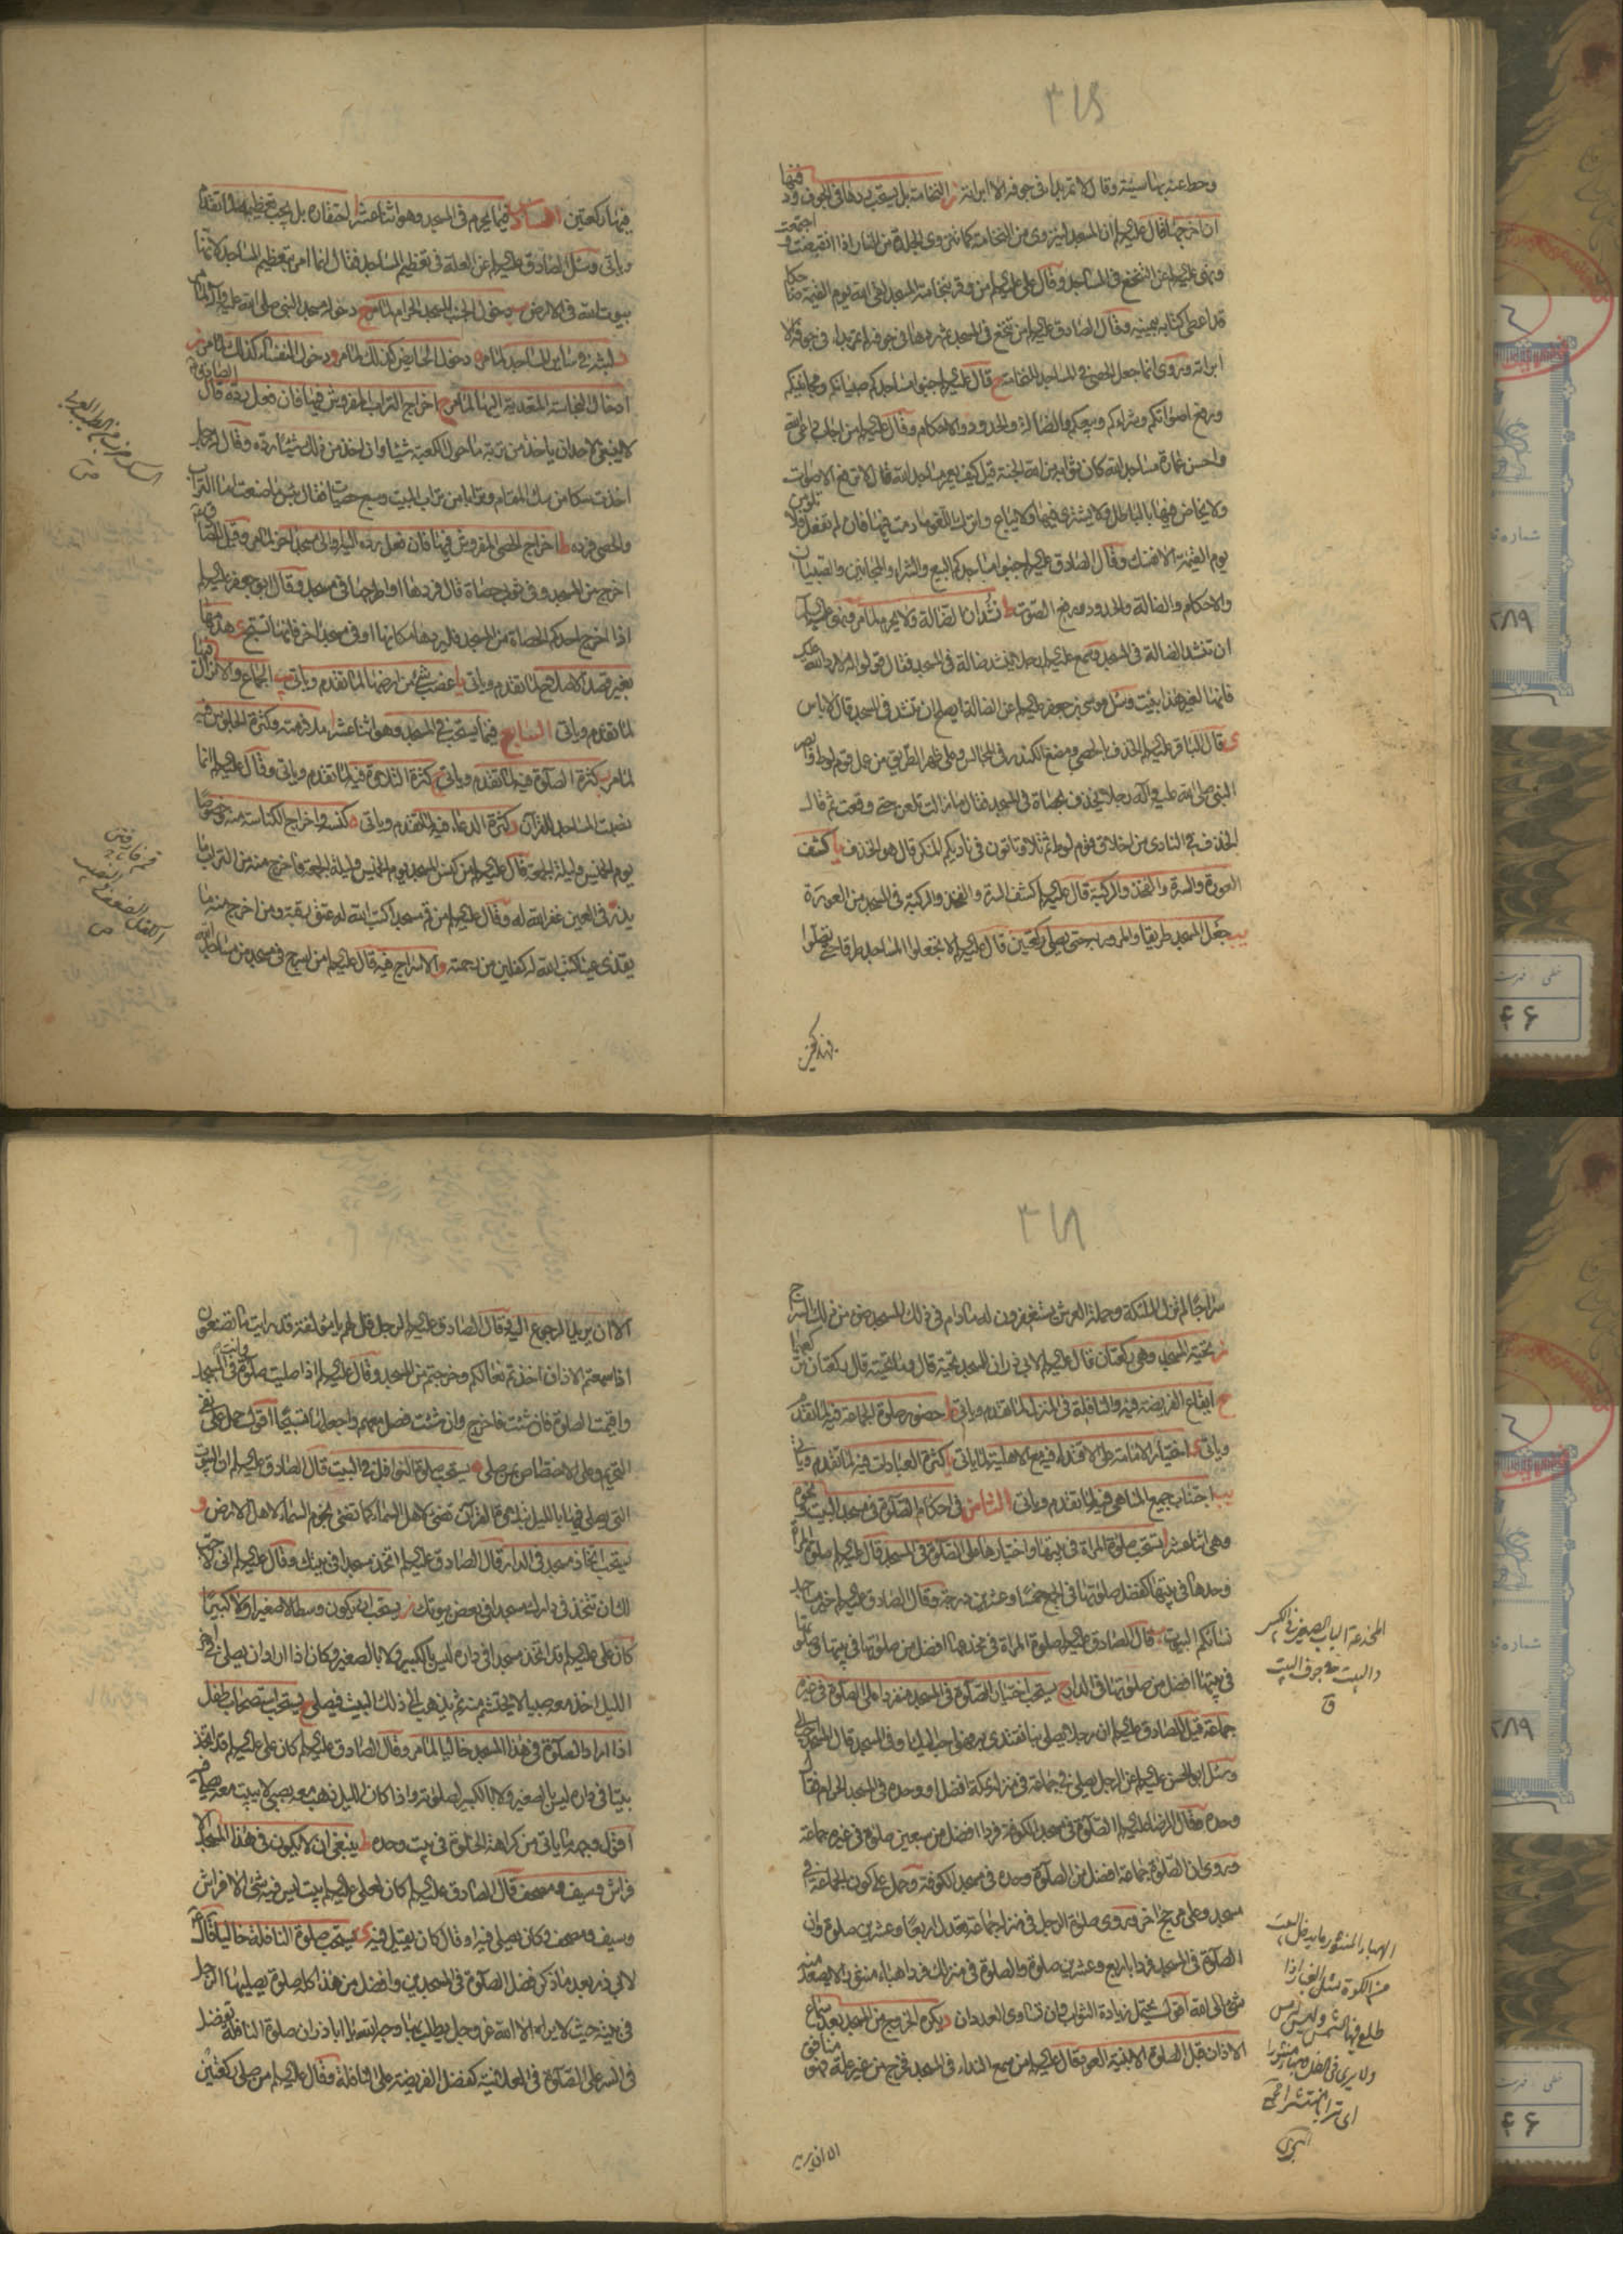 وحط عنه بها سيئة وقال لا تمر بداء في جوفه الا ابرأته ز النخامة بل يستحب ردها في الجوف ودفنها
ان اخرجها قال عليه السلام ان المسجد لينزوي من النخامة كما تنزوي الجلدة من النار اذا انقبضت واجتمعت
ونهى عليه السلام عن التنخع في المساجد وقال علي عليه السلام من وقر بنخامته المسجد لقي الله يوم القيمة ضاحكا
قد اعطي كتابه بيمينه وقال الصادق عليه السلام من تنخع في المسجد ثم ردها في جوفه لم تمر بداء في جوفه الا
ابرأته وروي انما جعل الحصى في المساجد للنخامة ح قال عليه السلام جنبوا مساجدكم صبيانكم ومجانينكم
ورفع اصواتكم وشراءكم وبيعكم والضالة والحدود والاحكام وقال عليه السلام من اجاب داعي الله
واحسن عمارة مساجد الله كان ثوابه من الله الجنة قيل كيف يعمر مساجد الله قال لا ترفع الاصوات
ولا يخاض فيها بالباطل ولا يشترى فيها ولا يباع واترك اللغو ما دمت فيها فان لم تفعل فلا تلومن
يوم القيمة الا نفسك وقال الصادق عليه السلام جنبوا مساجدكم البيع والشراء والمجانين والصبيان
والاحكام والضالة والحدود ورفع الصوت ط نشدان الضالة ولا يحرم لما مر ونهى عليه السلام
ان تنشد الضالة في المسجد وسمع عليه السلام رجلا ينشد ضالة في المسجد فقال قولوا له لا رد الله عليك
فانها لغير هذا بنيت وسئل موسى بن جعفر عليه السلام عن الضالة ايصلح ان تنشد في المسجد قال لا باس
ي قال الباقر عليه السلام الخذف بالحصى ومضغ الكندر في المجالس وعلى ظهر الطريق من عمل قوم لوط وابصر
النبي صلى الله عليه وآله رجلا يخذف بحصاة في المسجد فقال ما زالت تلعن حتى وقعت ثم قال
الخذف في النادي من اخلاق قوم لوط ثم تلا وتاتون في ناديكم المنكر قال هو الخذف يا كشف
العورة والسرة والفخذ والركبة قال عليه السلام كشف السرة والفخذ والركبة في المسجد من العورة
يب جعل المسجد طريقا والمرور به حتى يصلي ركعتين قال عليه السلام لا تجعلوا المساجد طرقا حتى تصلوا
فيها ركعتين السادس فيما يحرم في المسجد وهو اثنا عشر ا استخفافه بل يجب تعظيمه لما تقدم
وياتي وسئل الصادق عليه السلام عن العلة في تعظيم المساجد فقال انما امر بتعظيم المساجد لانها
بيوت الله في الارض ب دخول الجنب المسجد الحرام لما مر ج دخوله مسجد النبي صلى الله عليه وآله لما مر
د لبثه في سائر المساجد لما مر ه دخول الحائض كذلك لما مر و دخول النفساء كذلك لما مر ز
ادخال النجاسة المتعدية اليها لما مر ح اخراج التراب المفروش فيها فان فعل رده قال الصادق
لا ينبغي لاحد ان ياخذ من تربة ما حول الكعبة شيئا وان اخذ من ذلك شيئا رده وقال له رجل
اخذت سكا من سك المقام وترابا من تراب البيت وسبع حصيات فقال بئس ما صنعت اما التراب
والحصى فرده ط اخراج الحصى المفروش فيها فان فعل رده اليه او الى مسجد اخر لما مر وقيل للصادق
اخرج من المسجد وفي ثوبي حصاة قال فردها او اطرحها في مسجد وقال ابو جعفر عليه السلام
اذا اخرج احدكم الحصاة من المسجد فليردها مكانها او في مسجد اخر فانها تسبح ي هدمها
بغير قصد الاصلاح لما تقدم وياتي يا غصب شيء من ارضها لما تقدم وياتي يب الجماع والانزال فيها
لما تقدم وياتي السابع فيما يستحب في المسجد وهو اثنا عشر ا ملازمته وكثرة الجلوس فيه
لما مر ب كثرة الصلوة فيه لما تقدم وياتي ج كثرة التلاوة فيه لما تقدم وياتي وقال عليه السلام انما
نصبت المساجد للقرآن د كثرة الدعاء فيه لما تقدم وياتي ه كنسه واخراج الكناسة منه خصوصا
يوم الخميس وليلة الجمعة قال عليه السلام من كنس المسجد يوم الخميس وليلة الجمعة فاخرج منه من التراب ما
يذر في العين غفر الله له وقال عليه السلام من قم مسجدا كتب الله له عتق رقبة ومن اخرج منه ما
يقذي عينا كتب الله له كفلين من رحمته و الاسراج فيه قال عليه السلام من اسرج في مسجد من مساجد الله
سراجا لم تزل الملئكة وحملة العرش يستغفرون له ما دام في ذلك المسجد ضوء من ذلك السراج
ز تحية المسجد وهي ركعتان قال عليه السلام لابي ذر ان للمسجد تحية قال وما تحيته قال ركعتان تركعهما
ح ايقاع الفريضة فيه والنافلة في المنزل لما تقدم وياتي ط حضور صلوة الجماعة فيه لما تقدم
وياتي ي اختيار الامامة على الاقتداء فيه مع الاهلية لما ياتي يا كثرة العبادات فيه لما تقدم وياتي
يب اجتناب جميع المناهي فيه لما تقدم وياتي الثامن في احكام الصلوة في مسجد البيت ونحوه
وهي اثنا عشر ا تستحب صلوة المراة في بيتها واختيارها على الصلوة في المسجد قال عليه السلام صلوة المراة
وحدها في بيتها كفضل صلوتها في الجمع خمسا وعشرين درجة وقال الصادق عليه السلام خير مساجد
نسائكم البيوت ب قال الصادق عليه السلام صلوة المراة في مخدعها افضل من صلوتها في بيتها وصلوتها
في بيتها افضل من صلوتها في الدار ج يستحب اختيار الصلوة في المسجد منفردا على الصلوة في غيره
جماعة قيل للصادق عليه السلام ان رجلا يصلي بنا نقتدي به فهو احب اليك او في المسجد قال المسجد احب الي
وسئل ابو الحسن عليه السلام عن الرجل يصلي في جماعة في منزله بمكة افضل او وحده في المسجد الحرام فقال
وحده وقال الرضا عليه السلام الصلوة في مسجد الكوفة فردا افضل من سبعين صلوة في غيره جماعة
وروي ان الصلوة جماعة افضل من الصلوة وحده في مسجد الكوفة وحمل على كون الجماعة في
مسجد وعلى مرجح اخر وروي صلوة الرجل في منزله جماعة تعدل اربعا وعشرين صلوة وان
الصلوة في المسجد فردا باربع وعشرين صلوة والصلوة في منزلك فردا هباء منثور لا يصعد منه
شيء الى الله اقول يحتمل زيادة الثواب وان تساوى العددان د يكره الخروج من المسجد بعد سماع
الاذان قبل الصلوة الا بنية العود قال عليه السلام من سمع النداء في المسجد فخرج من غير علة فهو منافق
الا ان يريد الرجوع اليه وقال الصادق عليه السلام لرجل قل لهم يا مؤلفة قد رايت ما تصنعون
اذا سمعتم الاذان اخذتم نعالكم وخرجتم من المسجد وقال عليه السلام اذا صليت صلوة وانت في المسجد
واقيمت الصلوة فان شئت فاخرج وان شئت فصل معهم واجعلها تسبيحا اقول حمل على نفي
التحريم وعلى الاختصاص بمن صلى ه يستحب صلوة النوافل في البيت قال الصادق عليه السلام ان البيوت
التي يصلى فيها بالليل بتلاوة القرآن تضيء لاهل السماء كما تضيء نجوم السماء لاهل الارض و
يستحب اتخاذ مسجد في الدار قال الصادق عليه السلام اتخذ مسجدا في بيتك وقال عليه السلام اني لاحب
لك ان تتخذ في دارك مسجدا في بعض بيوتك ز يستحب ان يكون وسطا لا صغيرا ولا كبيرا
كان علي عليه السلام قد اتخذ مسجدا في داره ليس بالكبير ولا بالصغير وكان اذا اراد ان يصلي في اخر
الليل اخذ معه صبيا لا يحتشم منه ثم يذهب الى ذلك البيت فيصلي ح يستحب استصحاب طفل
اذا اراد الصلوة في هذا المسجد خاليا لما مر وقال الصادق عليه السلام كان علي عليه السلام قد اتخذ
بيتا في داره ليس بالصغير ولا بالكبير لصلوته واذا كان الليل ذهب معه بصبي لا يبيت معه فيصلي فيه
اقول وجهه ما ياتي من كراهة الخلوة في بيت وحده ط ينبغي ان لا يكون في هذا المسجد الا
فراش وسيف ومصحف قال الصادق عليه السلام كان لعلي عليه السلام بيت ليس فيه شيء الا فراش
وسيف ومصحف وكان يصلي فيه او قال كان يقيل فيه ي يستحب صلوة النافلة خاليا قال
لابي ذر بعد ما ذكر فضل الصلوة في المسجدين وافضل من هذا كله صلوة يصليها الرجل
في بيته حيث لا يراه الا الله عز وجل يطلب بها وجه الله يا اباذر ان صلوة النافلة تفضل
في السر على الصلوة في العلانية كفضل الفريضة على النافلة وقال عليه السلام من صلى ركعتين
السك ضرب من الطيب
ص
الكفل الضعف والنصيب
ص
المخدعة الباب الصغير في البيت الكبير
والبيت جوف البيت
ق
الا ان يريد
شماره
۲۸۹
خطی - فهرست
۴۶
شماره
۲۸۹
خطی - فهرست
۴۶